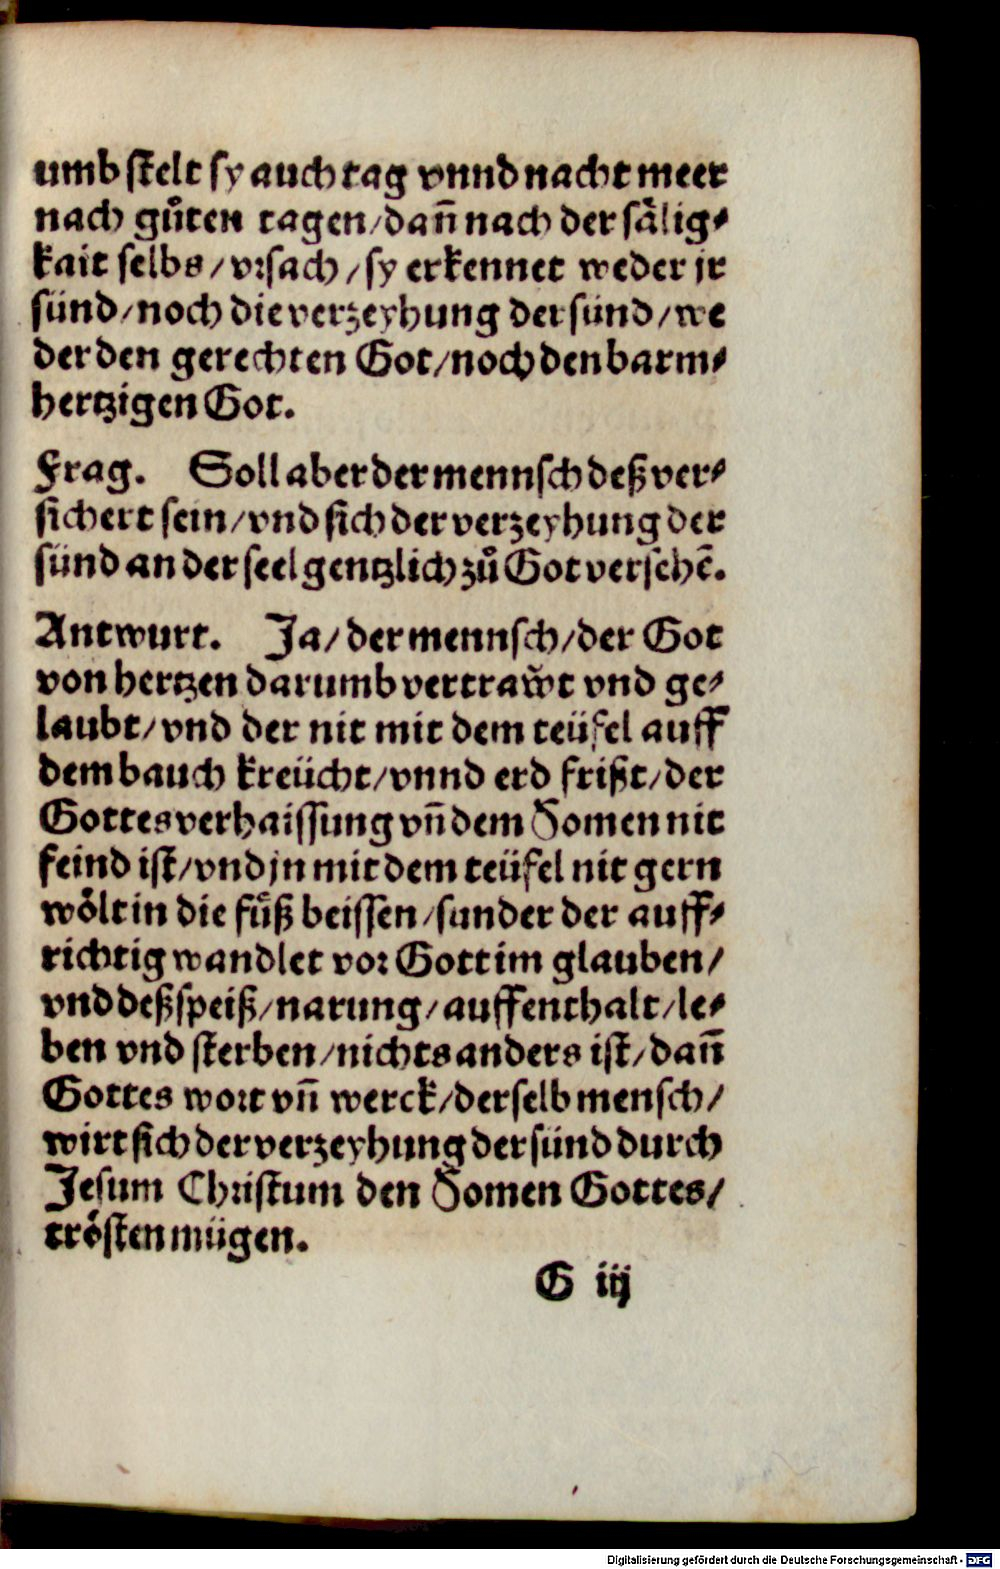 umb stelt sy auch tag vnnd nacht meer
nach gůten tagen/dañ nach der sålig⸗
kait selbs/vrsach/sy erkennet weder jr
sünd/noch die verzeyhung der sünd/we
der den gerechten Got/noch den barm⸗
hertzigen Got.
Frag. Soll aber der mennsch deß ver⸗
sichert sein/vnd sich der verzeyhung der
sünd an der seel gentzlich zů Got versehē.
Antwurt. Ja/der mennsch/der Got
von hertzen darumb vertraw̌t vnd ge⸗
laubt/vnd der nit mit dem teüfel auff
dem bauch kreücht/vnnd erd frißt/der
Gottes verhaissung vñ dem Somen nit
feind ist/vnd jn mit dem teüfel nit gern
wölt in die füß beissen/sunder der auff⸗
richtig wandlet vor Gott im glauben/
vnd deß speiß/narung/auffenthalt/le⸗
ben vnd sterben/nichts anders ist/dañ
Gottes wort vñ werck/der selb mensch/
wirt sich der verzeyhung der sünd durch
Jesum Christum den Somen Gottes/
trösten mügen.
G iij
Digitalisierung gefördert durch die Deutsche Forschungsgemeinschaft - DFG